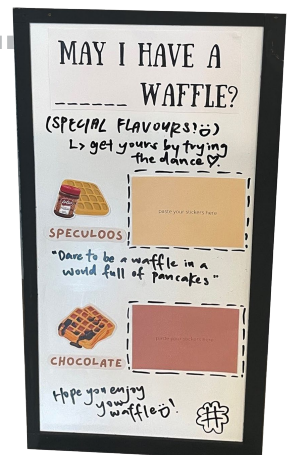 MAY I HAVE A
______ WAFFLE?
(SPECIAL FLAVOURS!)
L> get yours by trying
the dance
SPECULOOS
paste your stickers here
"Dare to be a waffle in a
world full of pancakes"
CHOCOLATE
paste your stickers here
Hope you enjoy
your waffle!
#